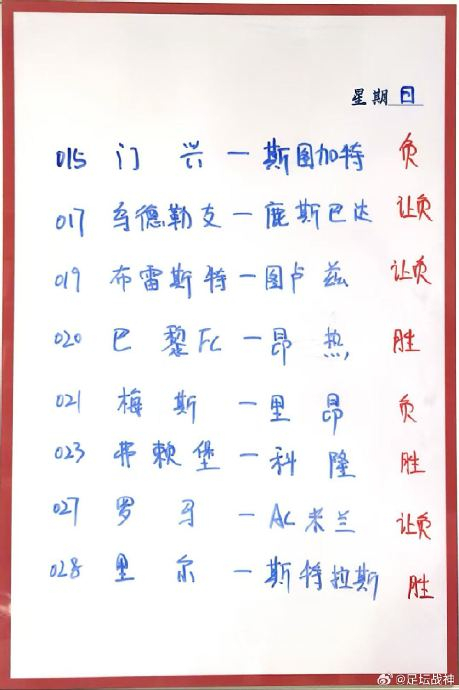 星期日
015 门兴一斯图加特 负
017 乌德勒支一鹿斯巴达 让负
019 布雷斯特一图卢兹 让负
020 巴黎FC一昂热 胜
021 梅斯一里昂 负
023 弗赖堡一科隆 胜
027 罗马一AC米兰 让负
028 里尔一斯特拉斯 胜
@足坛战神